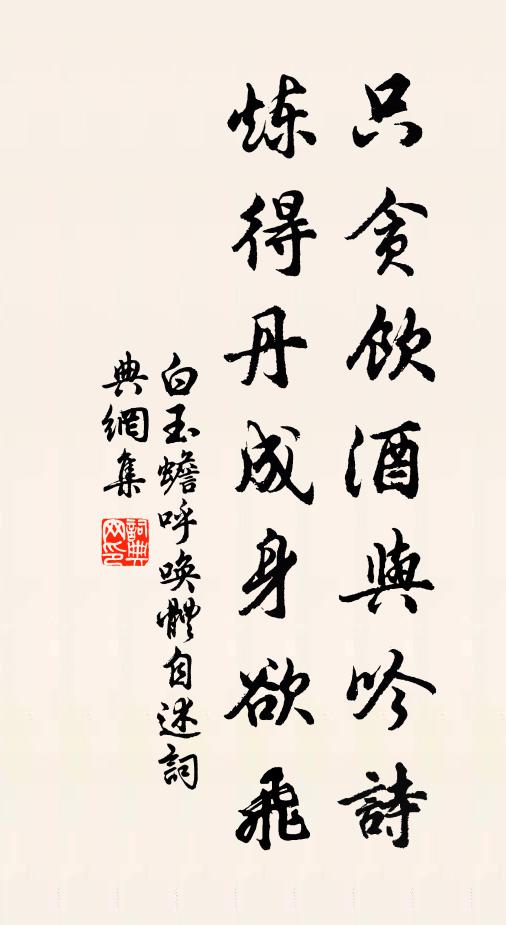 只貪飲酒與吟詩
炼得丹成身欲飛
白玉蟾呼喚體自述詞
典網集
詞典網印